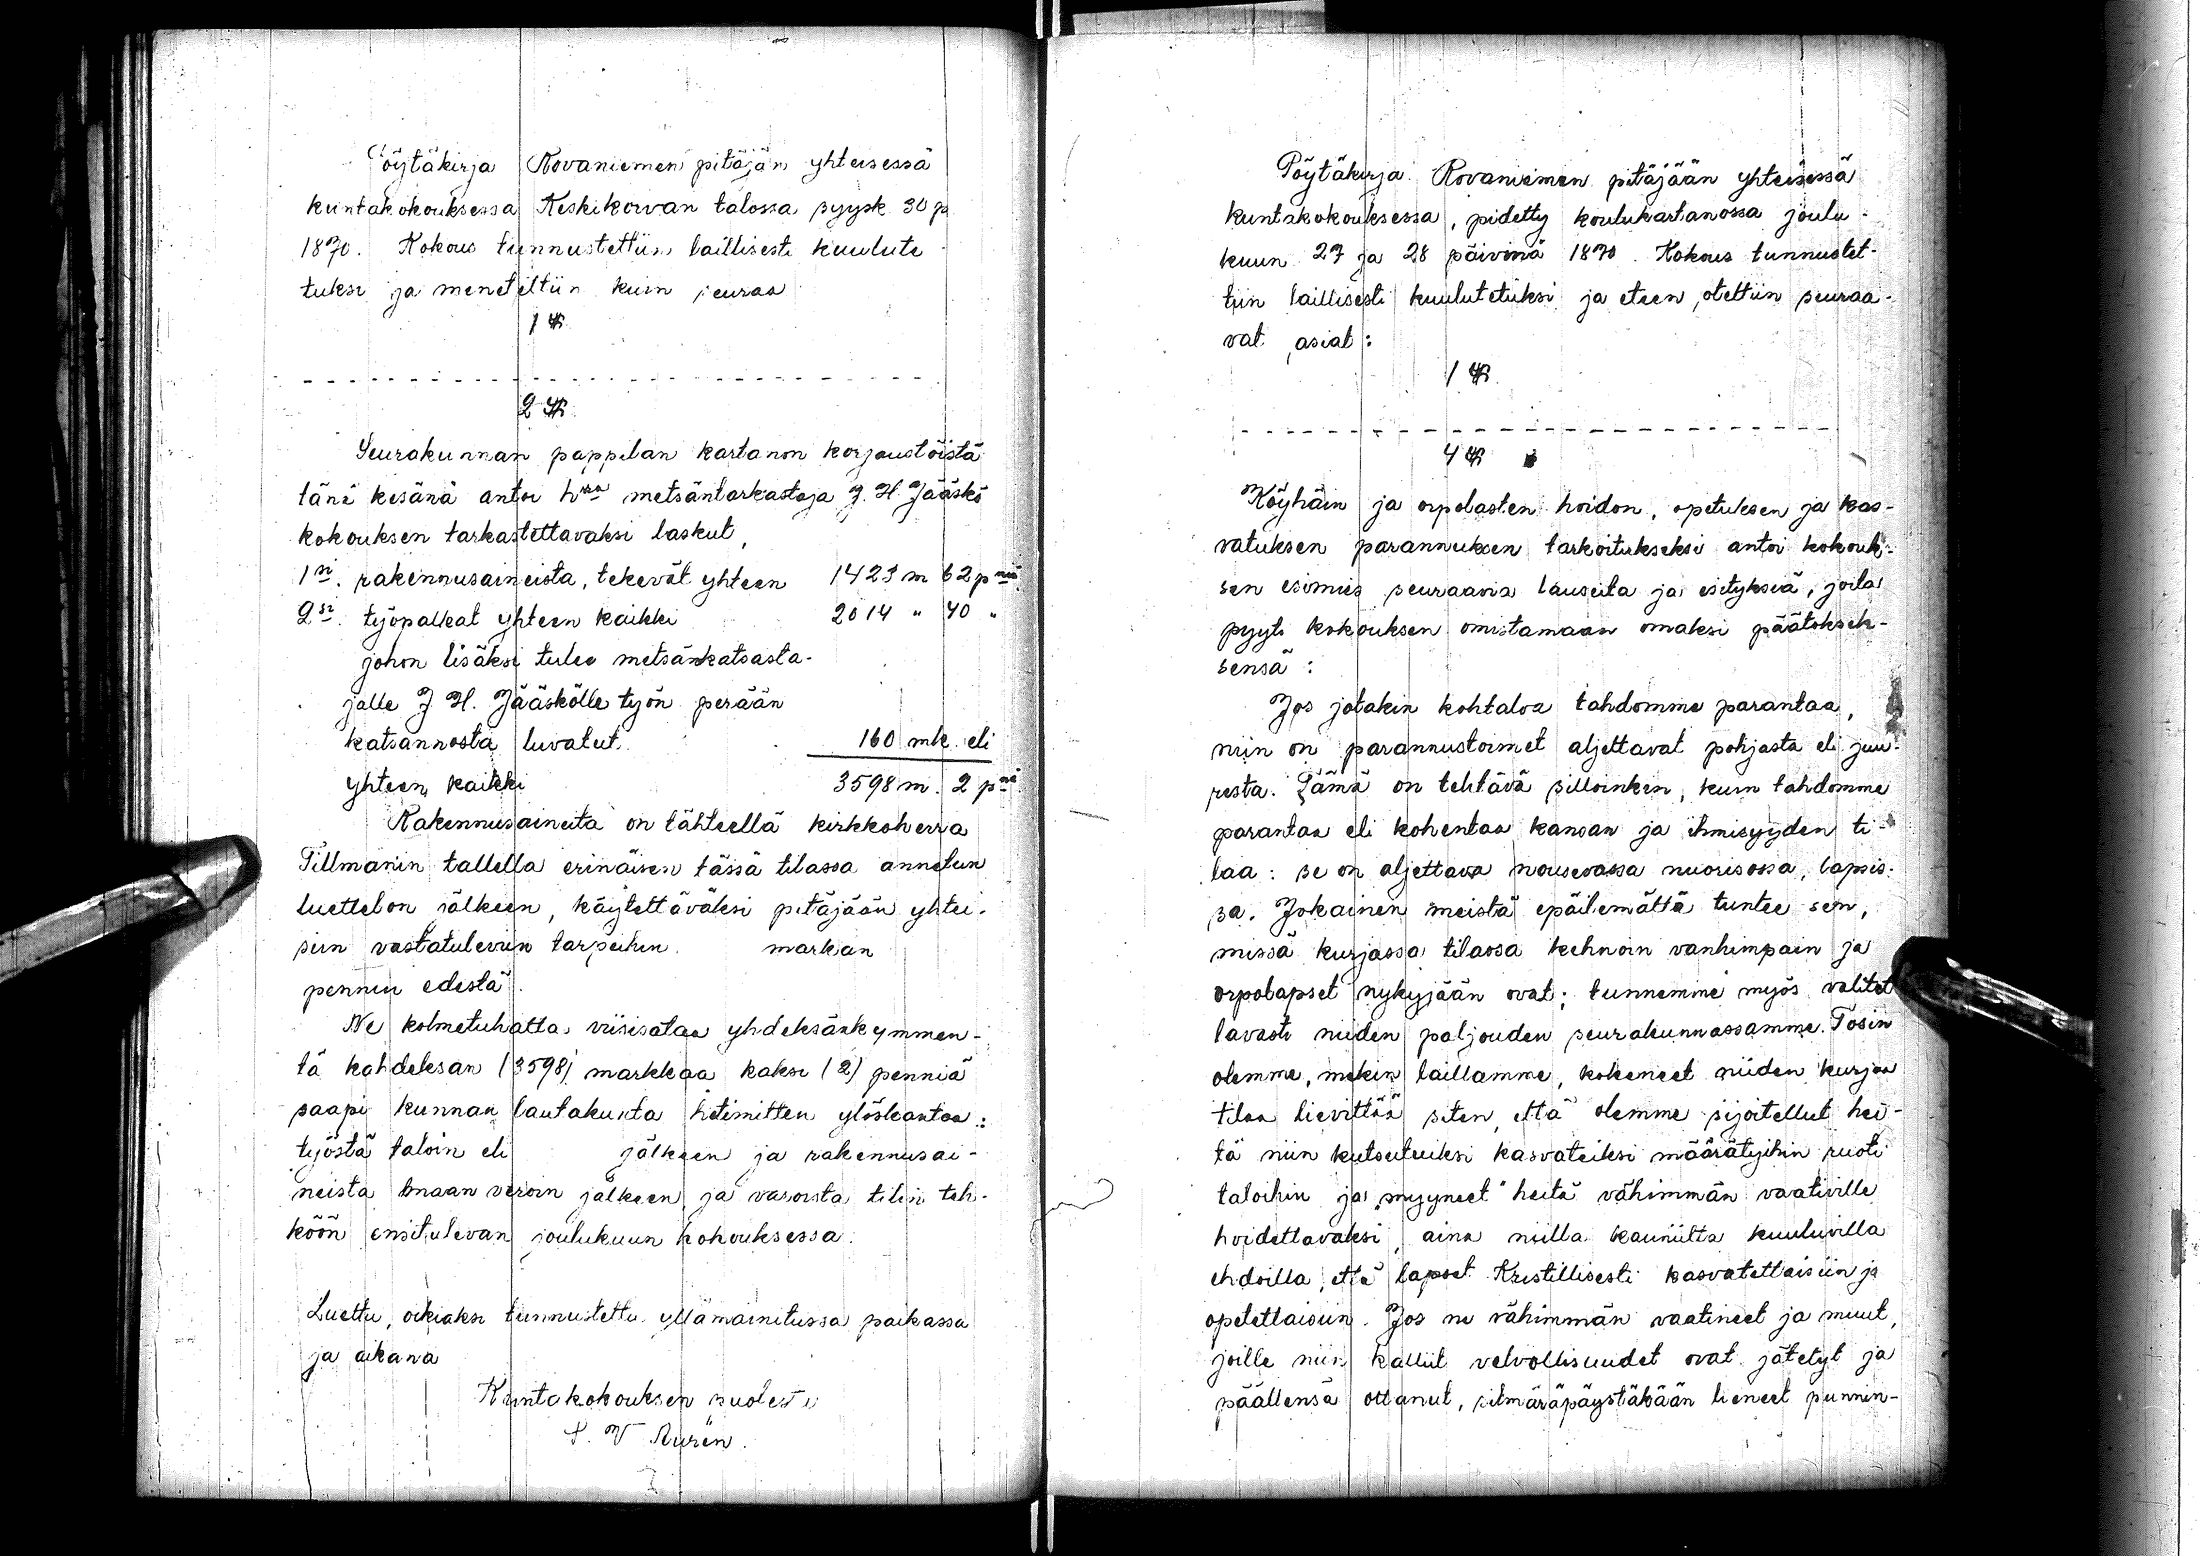 Pöytäkirja Rovaniemen pitäjän yhteisessä
kuntakokouksessa Keskikorvan talossa syysk 30 p
1870. Kokous tunnustettiin laillisesti kuulute
tuksi ja meneteltiin kuin seuraa
1 §
2 §
Seurakunnan pappilan kartanon korjaustöistä
tänä kesänä antoi hrra metsäntarkastaja J. H. Jääskö
kokouksen tarkastettavaksi laskut,
1si. rakennusaineista, tekevät yhteen 1423 m 62 pniä
2si. työpalkat yhteen kaikki 2014 " 40 "
johon lisäksi tulee metsänkatsasta-
jalle J H. Jääskölle työn perään
katsannosta luvatut 160 mk. eli
yhteen kaikki 3598 m. 2 pniä
Rakennusaineita on tähteellä kirkkoherra
Tillmanin tallella erinäisen tässä tilassa annetun
luettelon jälkeen, käytettäväksi pitäjään yhtei-
siin vastatuleviin tarpeihin. markan
pennin edestä.
Ne kolmetuhatta viisisataa yhdeksänkymmen-
tä kahdeksan (3598) markkaa kaksi (2) penniä
saapi kunnan lautakunta hetimitten ylöskantaa:
työstä taloin eli jälkeen ja rakennusai-
neista maan veroin jälkeen ja varoista tilin teh-
köön ensitulevan joulukuun kokouksessa.
Luettu, oikiaksi tunnustettu yllämainitussa paikassa
ja aikana
Kuntakokouksen puolesta
V Aurén.
Pöytäkirja Rovaniemen pitäjään yhteisessä
kuntakokouksessa, pidetty koulukartanossa joulu-
kuun 27 ja 28 päivinä 1870. Kokous tunnustet-
tiin laillisesti kuulutetuksi ja eteen otettiin seuraa-
vat asiat:
1 §
4 §
Köyhäin ja orpolasten hoidon, opetuksen ja kas-
vatuksen parannuksen tarkoitukseksi antoi kokouk-
sen esimies seuraavia lauseita ja esityksiä, joita
pyyti kokouksen omistamaan omaksi päätöksek-
sensä:
Jos jotakin kohtaloa tahdomme parantaa,
niin on parannustoimet aljettavat pohjasta eli juu-
resta. Tämä on tehtävä silloinkin, kuin tahdomme
parantaa eli kohentaa kansan ja ihmisyyden ti-
laa: se on aljettava nousevassa nuorisossa, lapsis-
sa. Jokainen meistä epäilemättä tuntee sen,
missä kurjassa tilassa kehnoin vanhimpain ja
orpolapset nykyjään ovat; tunnemme myös valitet
tavasti niiden paljouden seurakunnassamme. Tosin
olemme, mekin laillamme, kokeneet niiden kurjaa
tilaa lievittää siten, että olemme sijoitellut hei-
tä niin kutsutuiksi kasvateiksi määrätyihin ruoti
taloihin ja „myyneet" heitä vähimmän vaativille
hoidettavaksi, aina niillä kauniilta kuuluvilla
ehdoilla, että lapset Kristillisesti kasvatettaisiin ja
opetettaisiin. Jos ne vähimmän vaatineet ja muut,
joille niin kalliit velvollisuudet ovat jätetyt ja
päällensä ottanut, silmäräpäystäkään lieneet punnin-